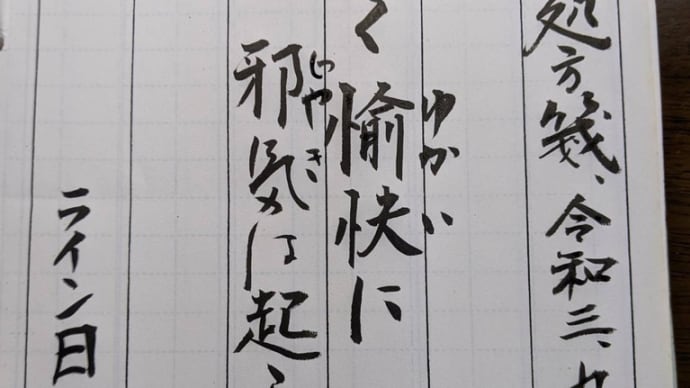 処方箋、令和三、
ゆかい
く愉快に
じやき
邪気は起
ライン日